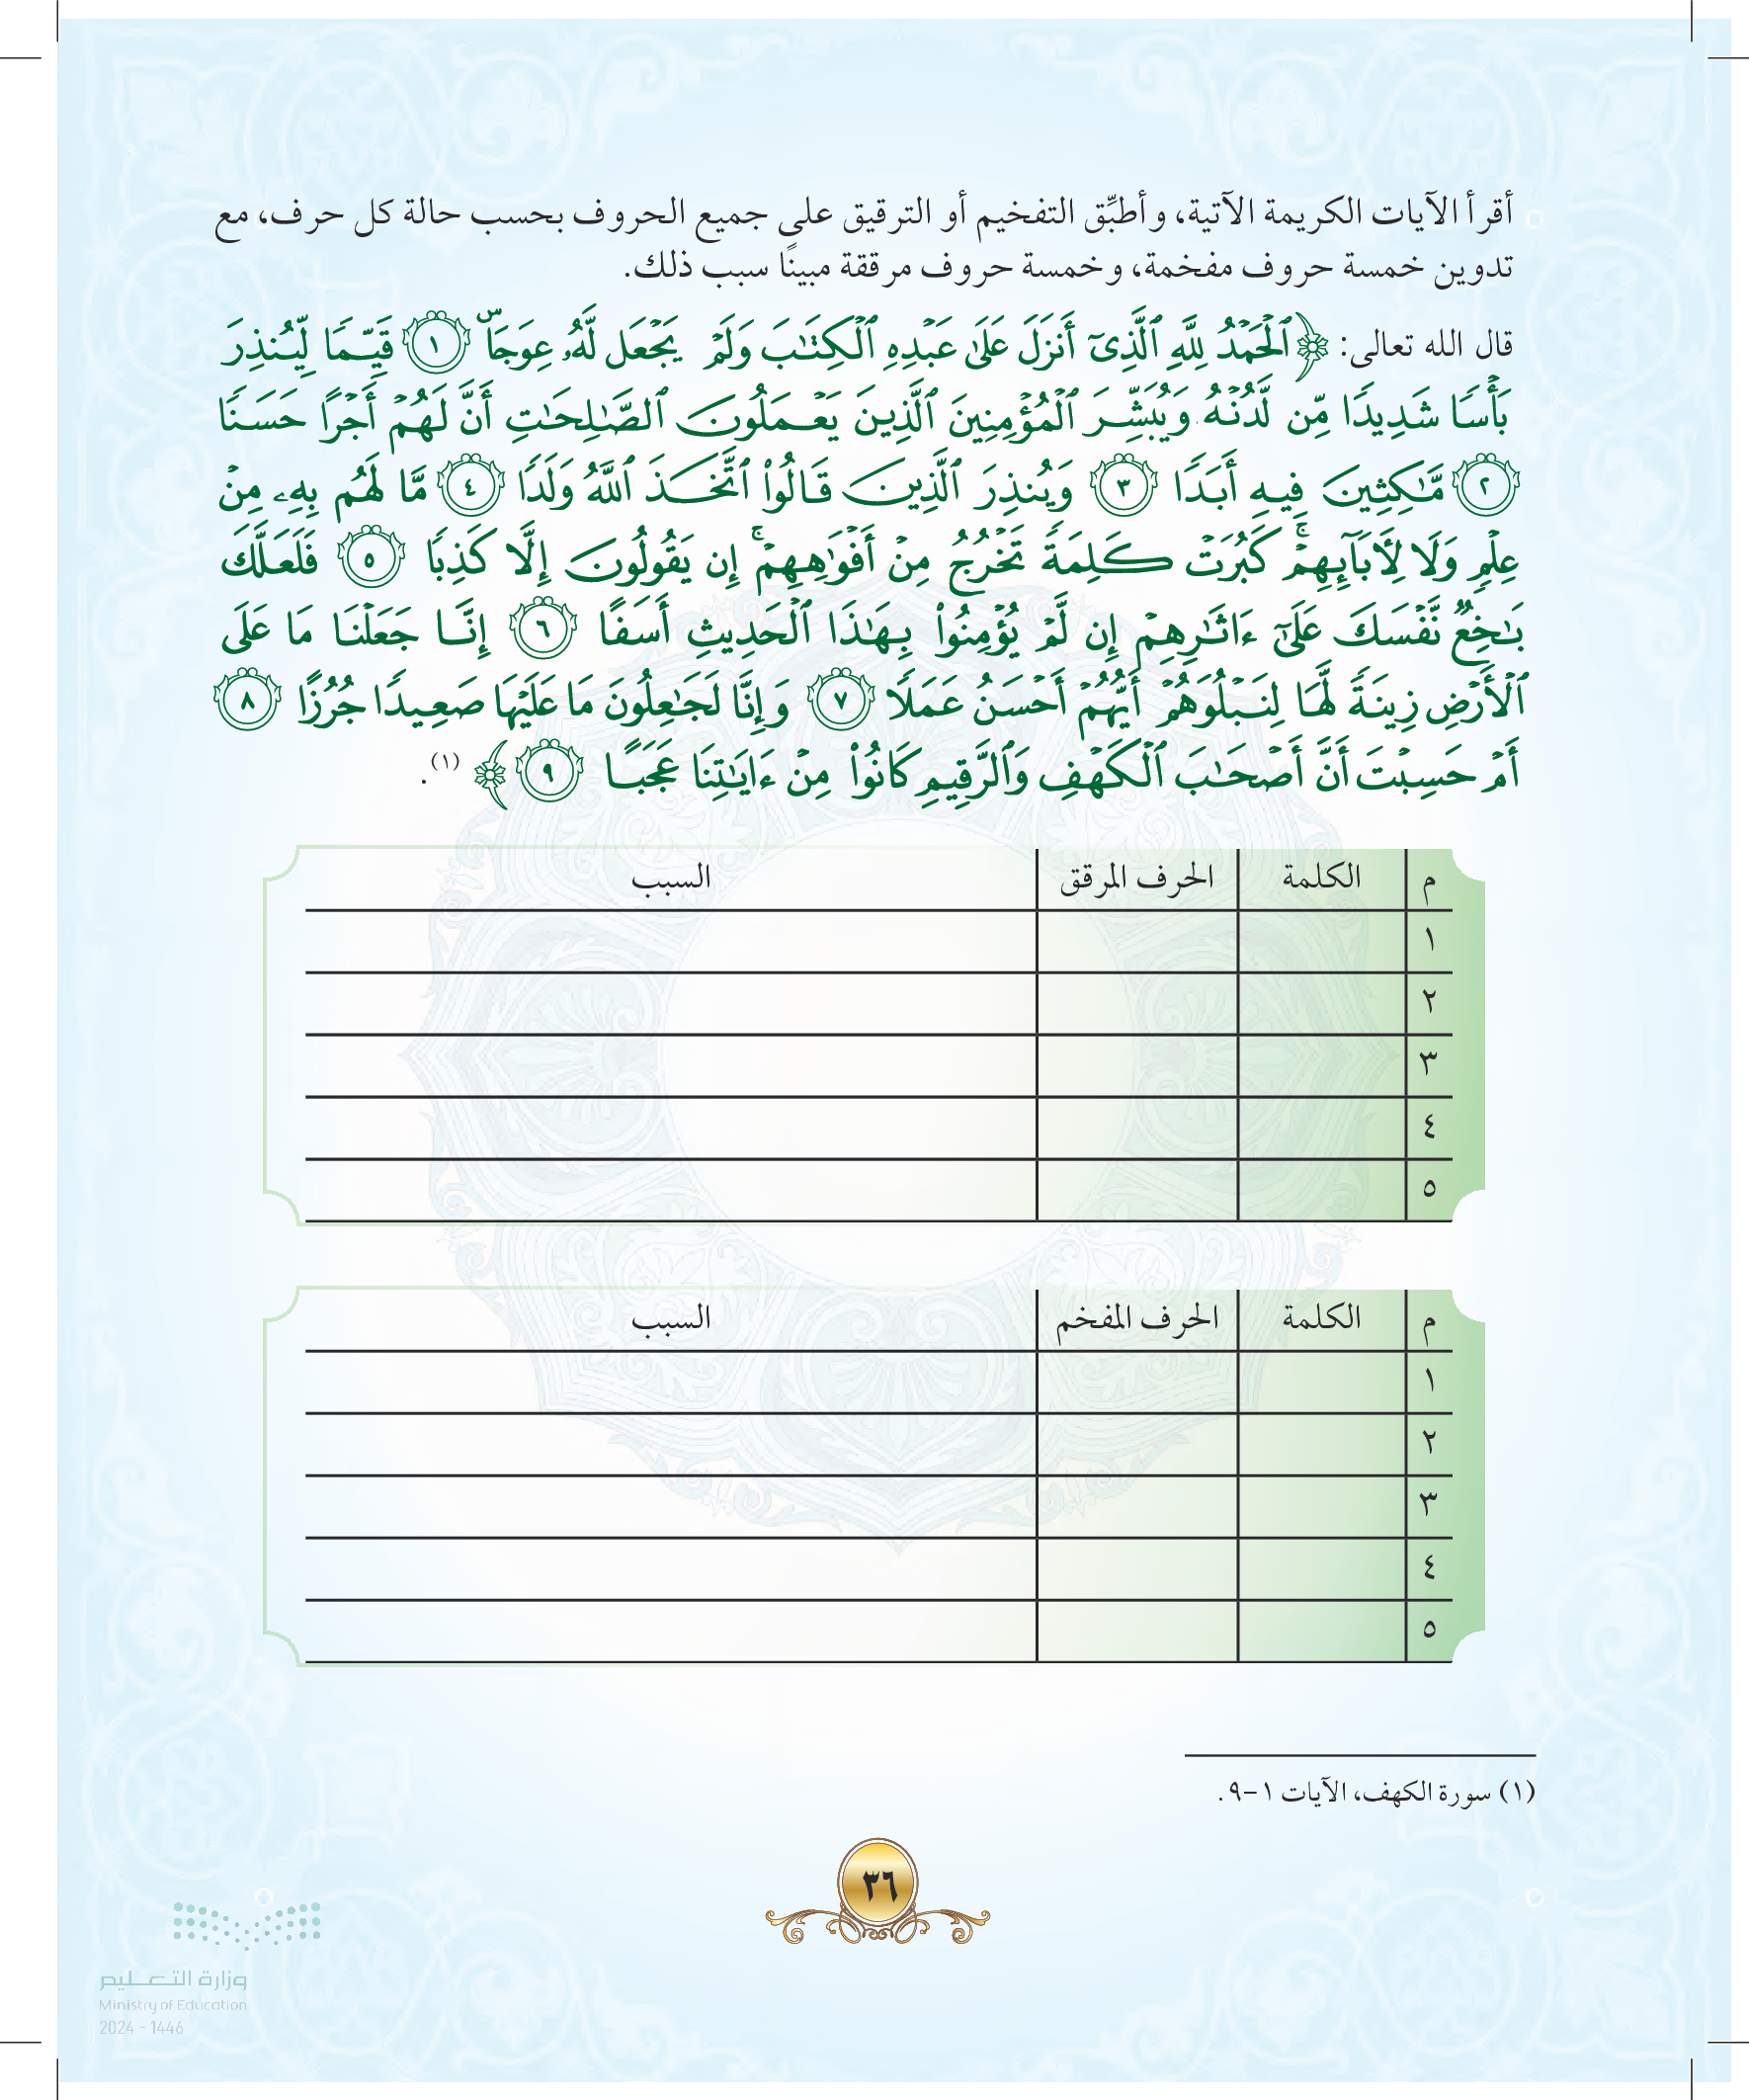 أقرأ الآيات الكريمة الآتية، وأطبِّق التفخيم أو الترقيق على جميع الحروف بحسب حالة كل حرف، مع
تدوين خمسة حروف مفخمة، وخمسة حروف مرققة مبينًا سبب ذلك.
قال الله تعالى: ﴿ٱلۡحَمۡدُ لِلَّهِ ٱلَّذِيٓ أَنزَلَ عَلَىٰ عَبۡدِهِ ٱلۡكِتَٰبَ وَلَمۡ يَجۡعَل لَّهُۥ عِوَجَاۜ ١ قَيِّمٗا لِّيُنذِرَ
بَأۡسٗا شَدِيدٗا مِّن لَّدُنۡهُ وَيُبَشِّرَ ٱلۡمُؤۡمِنِينَ ٱلَّذِينَ يَعۡمَلُونَ ٱلصَّٰلِحَٰتِ أَنَّ لَهُمۡ أَجۡرًا حَسَنٗا
٢ مَّٰكِثِينَ فِيهِ أَبَدٗا ٣ وَيُنذِرَ ٱلَّذِينَ قَالُواْ ٱتَّخَذَ ٱللَّهُ وَلَدٗا ٤ مَّا لَهُم بِهِۦ مِنۡ
عِلۡمٖ وَلَا لِأٓبَآئِهِمۡۚ كَبُرَتۡ كَلِمَةٗ تَخۡرُجُ مِنۡ أَفۡوَٰهِهِمۡۚ إِن يَقُولُونَ إِلَّا كَذِبٗا ٥ فَلَعَلَّكَ
بَٰخِعٞ نَّفۡسَكَ عَلَىٰٓ ءَاثَٰرِهِمۡ إِن لَّمۡ يُؤۡمِنُواْ بِهَٰذَا ٱلۡحَدِيثِ أَسَفًا ٦ إِنَّا جَعَلۡنَا مَا عَلَى
ٱلۡأَرۡضِ زِينَةٗ لَّهَا لِنَبۡلُوَهُمۡ أَيُّهُمۡ أَحۡسَنُ عَمَلٗا ٧ وَإِنَّا لَجَٰعِلُونَ مَا عَلَيۡهَا صَعِيدٗا جُرُزًا ٨
أَمۡ حَسِبۡتَ أَنَّ أَصۡحَٰبَ ٱلۡكَهۡفِ وَٱلرَّقِيمِ كَانُواْ مِنۡ ءَايَٰتِنَا عَجَبًا ٩﴾ (١).
م الكلمة الحرف المرقق السبب
١
٢
٣
٤
٥
م الكلمة الحرف المفخم السبب
١
٢
٣
٤
٥
(١) سورة الكهف، الآيات ١-٩.
٣٦
وزارة التعليم
Ministry of Education
2024 - 1446